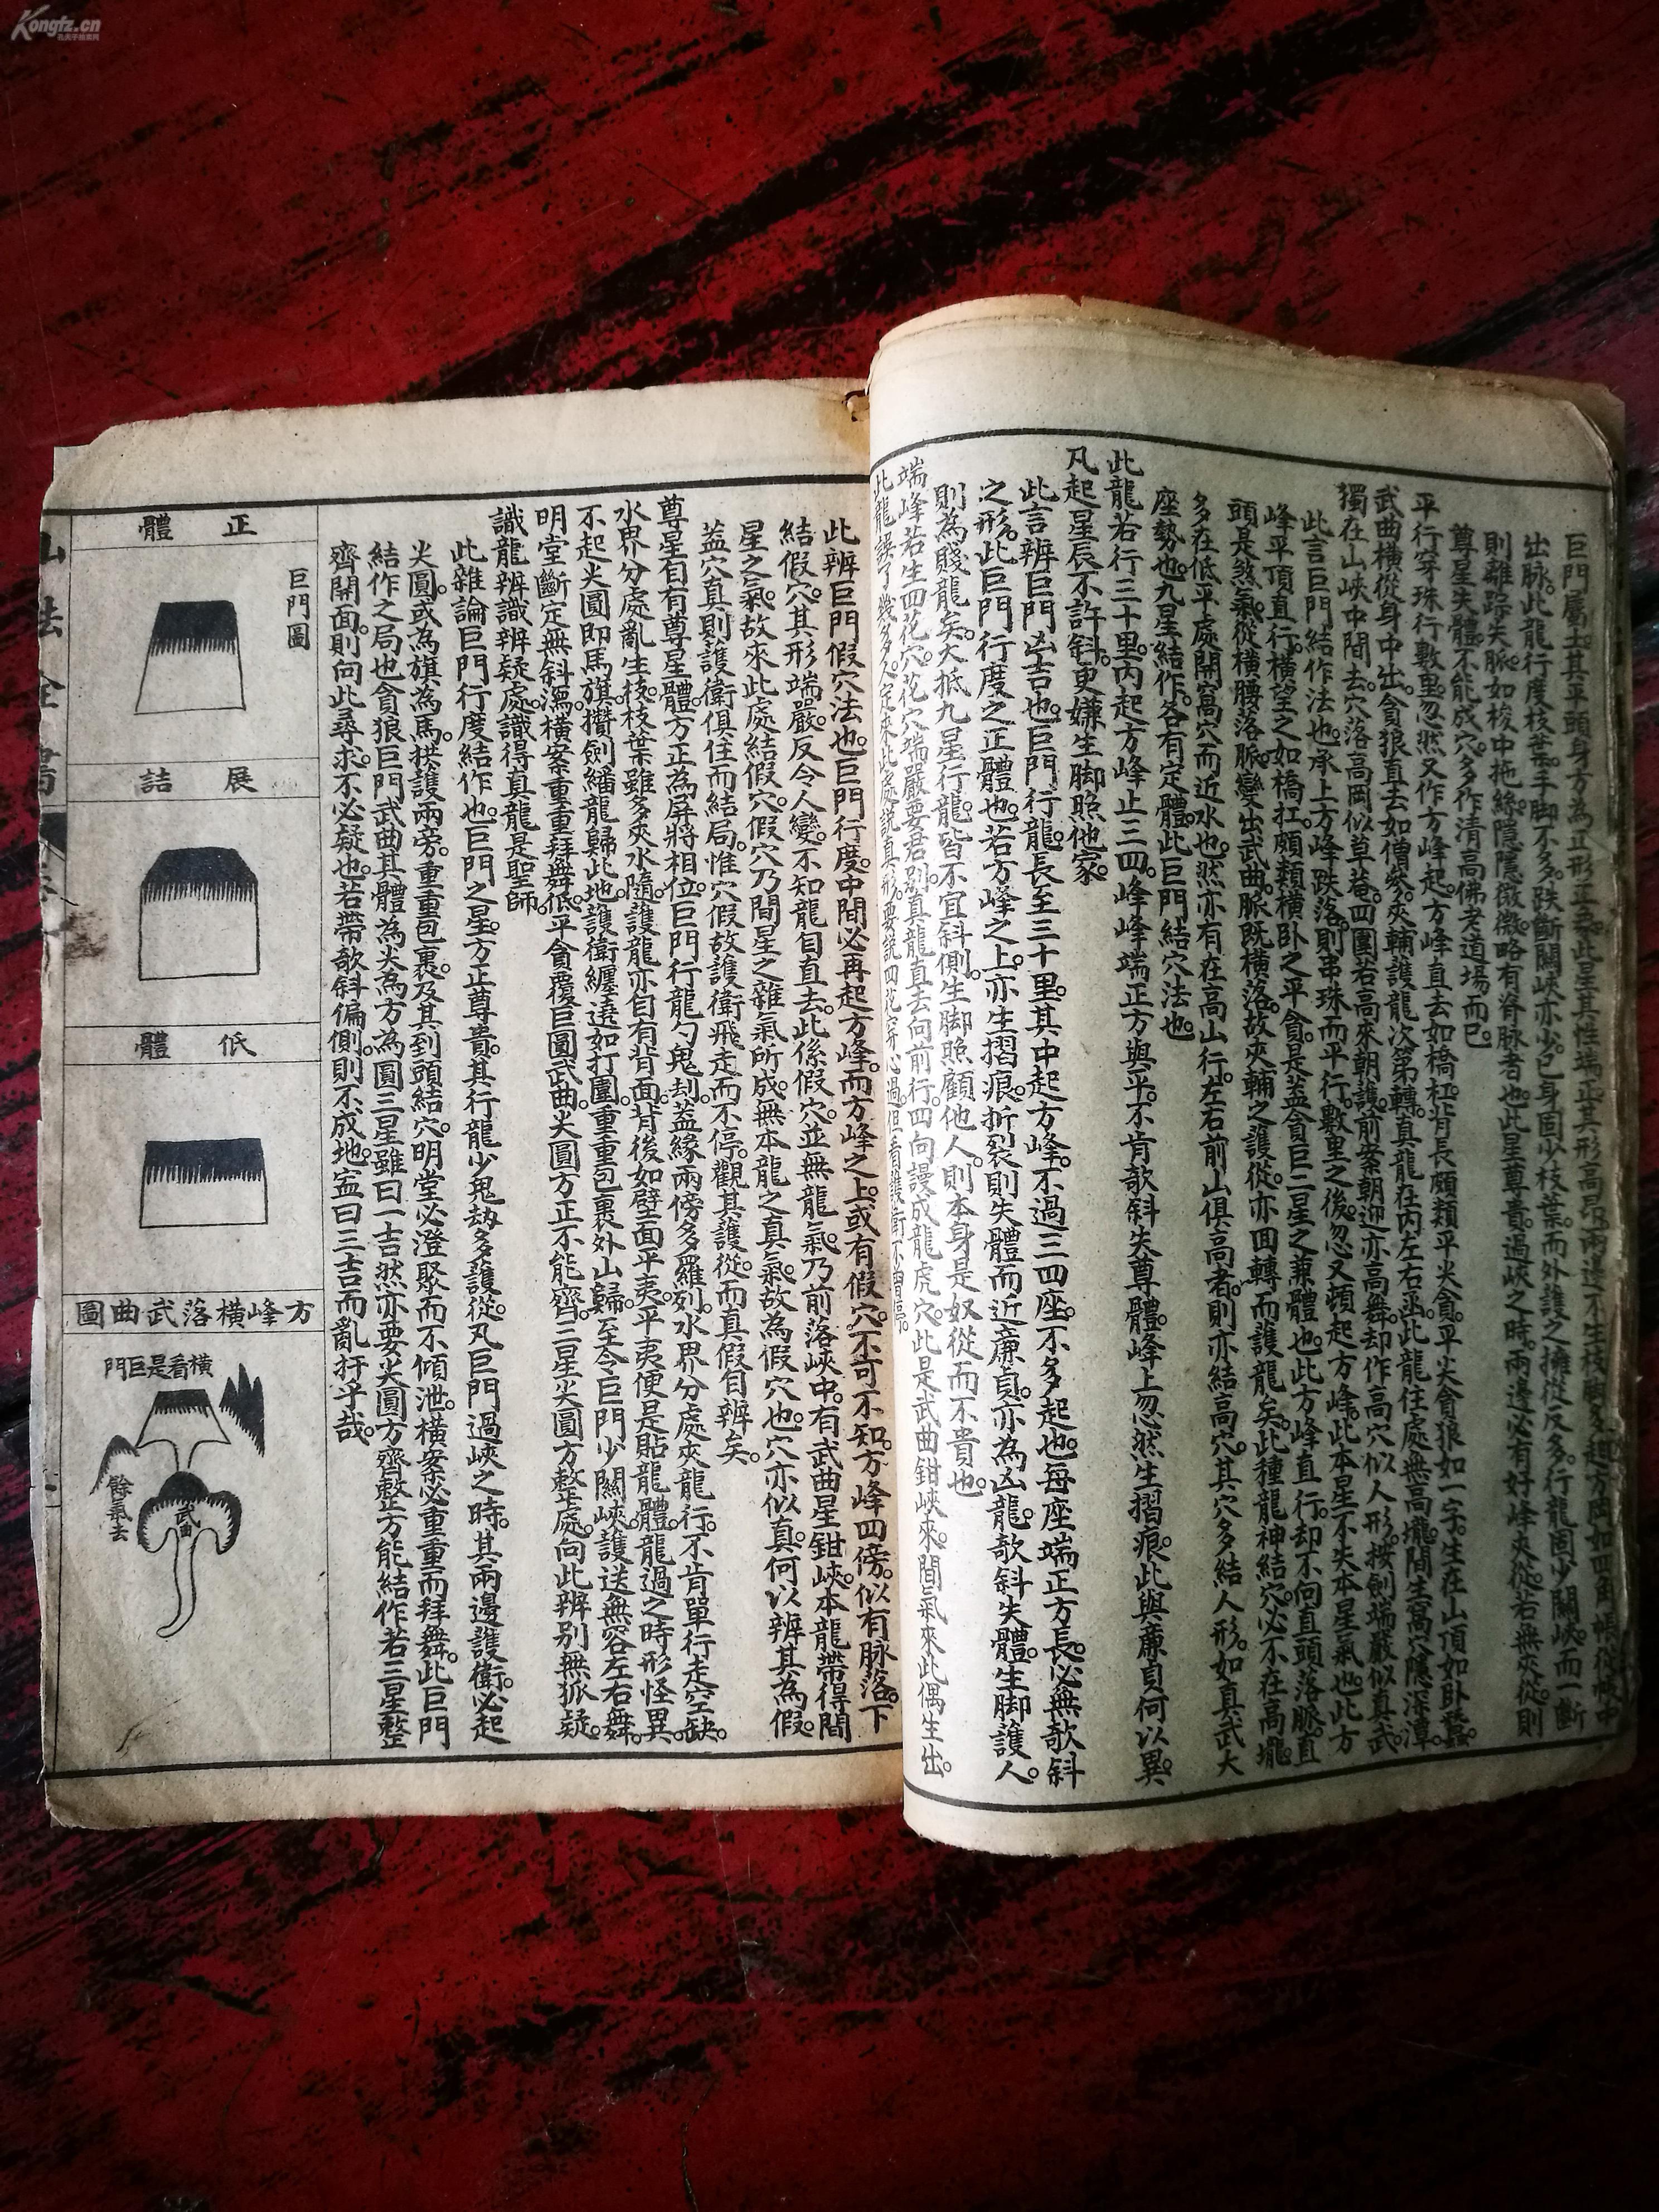 Kongfz.cn
巨門屬土其平頭身方為正形
出脉此龍行度枝葉手脚不多跌斷關峽亦少已身固少枝葉而外護之擁從反多行龍固少關峽而一斷
則離踪失脈如梭中拖絲隱隱微微略有脊脉者也此星尊貴過峽之時兩邊必有好峰夾從若無夾從則
尊星失體不能成穴多作清高佛老道場而已
平行穿珠行數里忽然又作方峰起方峰直去如橋杠背長頗類平尖貪平尖貪狼如一字生在山頂如臥蠶
武曲橫從身中出貪狼直去如僧參夾輔護龍次第轉真龍在內左右函此龍住處無高壠間生窩穴隱深潭
獨在山峽中間去穴落高岡似草菴四圍若高來朝護前案朝迎亦高舞却作高穴似人形按劍端嚴似真武
此言巨門結作法也承上方峰跌落則串珠而平行數里之後忽又頓起方峰此本星不失本星氣也此方
峰平頂直行橫望之如橋扛頗類橫卧之平貪是盖貪巨二星之兼體也此方峰直行却不向直頭落脈直
頭是煞氣從橫腰落脈變出武曲脈既橫落故夾輔之護從亦回轉而護龍矣此種龍神結穴必不在高壠
多在低平處開窩穴而近水也然亦有在高山行左右前山俱高者則亦結高穴其穴多結人形如真武大
座勢也九星結作各有定體此巨門結穴法也
此龍若行三十里內起方峰止三四峰峰端正方與平不肯欹斜失尊體峰上忽然生摺痕此與廉貞何以異
凡起星辰不許斜更嫌生脚照他家
此言辨巨門凶吉也巨門行龍長至三十里其中起方峰不過三四座不多起也每座端正方長必無欹斜
之形此巨門行度之正體也若方峰之上亦生摺痕折裂則失體而近廉貞亦為凶龍欹斜失體生脚護人
則為賤龍矣大抵九星行龍皆不宜斜側生脚照顧他人則本身是奴從而不貴也
端峰若生四花穴花穴端嚴要君別真龍直去向前行四向謾成龍虎穴此是武曲鉗峽來間氣來此偶生出
此龍誤了幾多人定來此處說真形要說四花穿心過但看護衛不曾停
此辨巨門假穴法也巨門行度中間必再起方峰而方峰之上或有假穴不可不知方峰四傍似有脉落下
結假穴其形端嚴反令人變不知龍自直去此係假穴並無龍氣乃前落峽中有武曲星鉗峽本龍帶得間
星之氣故來此處結假穴假穴乃間星之雜氣所成無本龍之真氣故為假穴也穴亦似真何以辨其為假
蓋穴真則護衛俱住而結局惟穴假故護衛飛走而不停觀其護從而真假自辨矣
尊星自有尊星體方正為屏將相位巨門行龍勺鬼刦蓋緣兩傍多羅列水界分處夾龍行不肯單行走空缺
水界分處亂生枝枝葉雖多夾水隨護龍亦自有背面背後如壁面平夷平夷便是貼龍體龍過之時形怪異
不起尖圓即馬旗攢劍繙龍歸此地護衛纏遶如打圍重重包裹外山歸至令巨門少關峽護送無容左右舞
明堂斷定無斜瀉橫案重重拜舞低平貪覆巨圓武曲尖圓方正不能齊三星尖圓方整處向此辨別無狐疑
識龍辨識辨疑處識得真龍是聖師
此雜論巨門行度結作也巨門之星方正尊貴其行龍少鬼劫多護從凡巨門過峽之時其兩邊護衛必起
尖圓或為旗為馬拱護兩旁重重包裹及其到頭結穴明堂必澄聚而不傾泄橫案必重重而拜舞此巨門
結作之局也貪狼巨門武曲其體為尖為方為圓三星雖曰一吉然亦要尖圓方齊整方能結作若三星整
齊開面則向此尋求不必疑也若帶欹斜偏側則不成地盖曰三吉而亂扦乎哉
正體
巨門圖
展誥
低體
方峰橫落武曲圖
橫看是巨門
武曲
餘氣去
山法全書